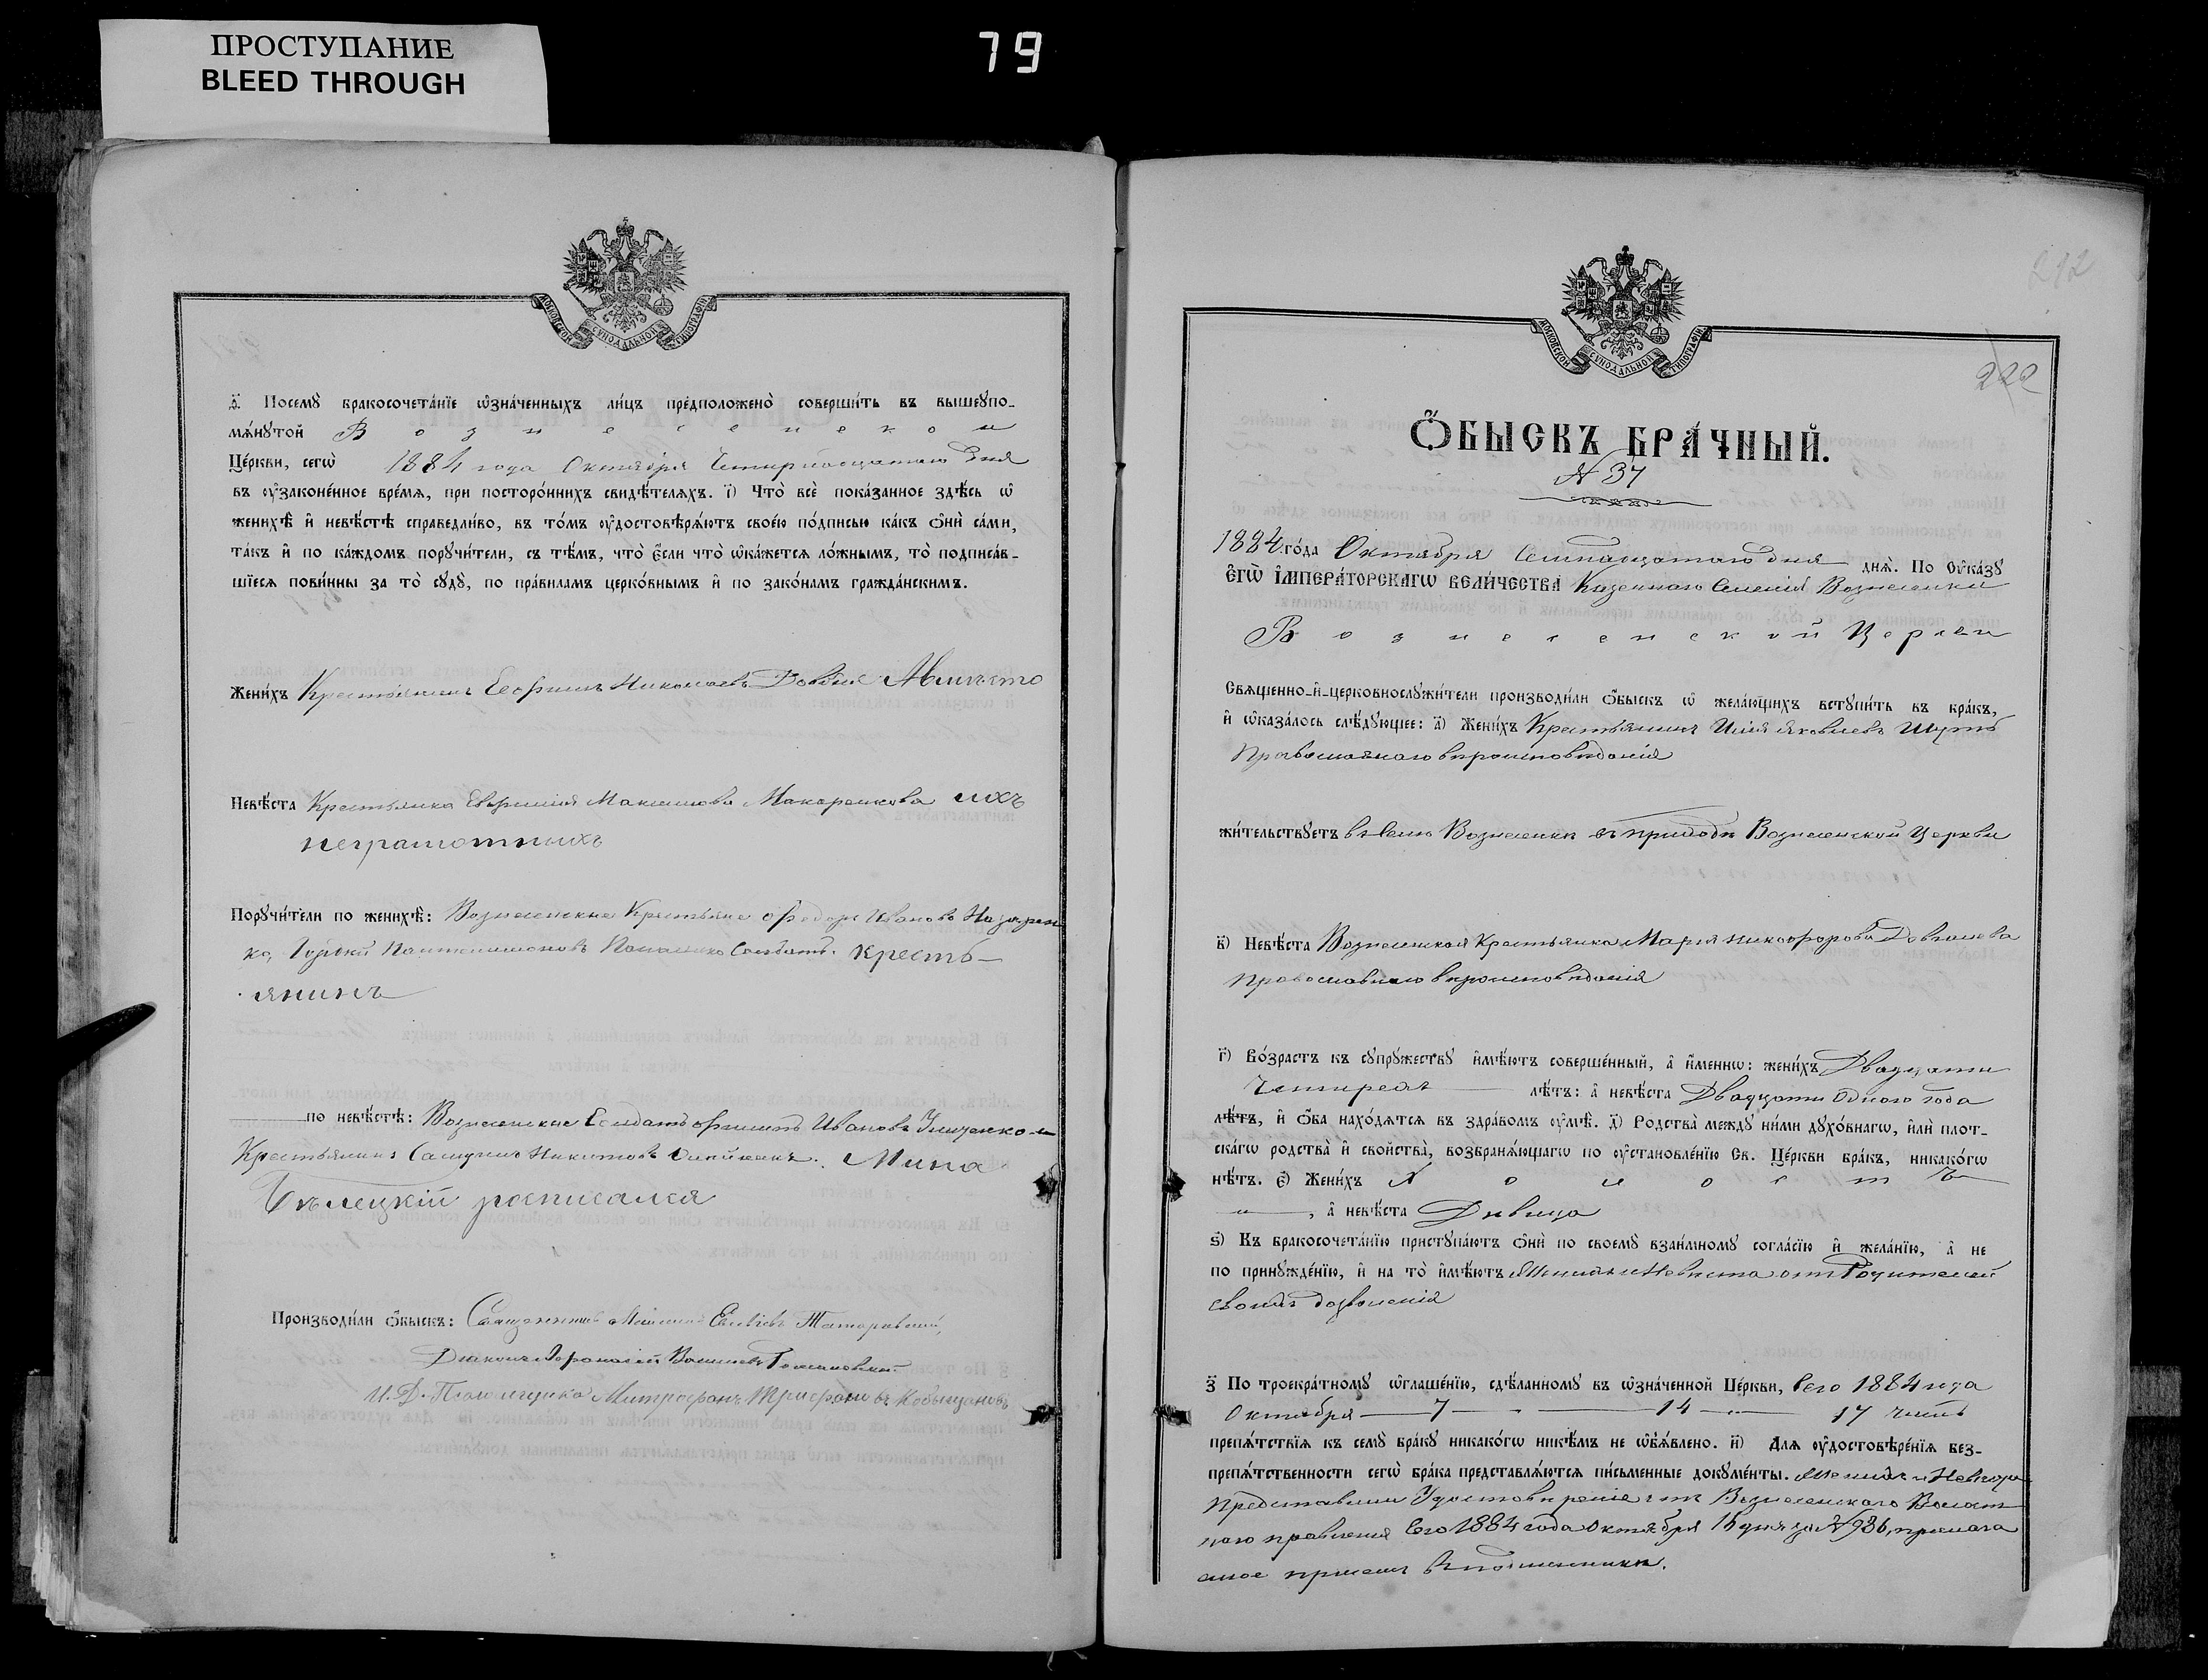 ПРОСТУПАНИЕ
BLEED THROUGH
79
МОСКОВСКОЙ СУНОДАЛЬНОЙ ТИПОГРАФІИ
Посемꙋ бракосочета́нїе ѡ҆зна́ченныхъ ли́цъ предположено̀ соверши́ть въ вышеꙋпо-
мѧ́нꙋтой Вознесенской
Це́ркви, сегѡ̀ 1884 года Октября Четырнадцатаго дня
въ ᲂу҆законе́нное вре́мѧ, при посторо́ннихъ свидѣ́телѧхъ. і҃) Что̀ всѐ пока́занное здѣ́сь ѡ҆
женихѣ̀ и҆ невѣ́стѣ справедли́во, въ то́мъ ᲂу҆достовѣрѧ́ютъ свое́ю по́дписью ка́къ ѻ҆нѝ са́ми,
та́къ и҆ по ка́ждомъ порꙋчи́тели, съ тѣ́мъ, что̀ є҆́сли что̀ ѡ҆ка́жетсѧ ло́жнымъ, то̀ подписа́в-
шїесѧ пови́нны за то̀ сꙋдꙋ̀, по пра́виламъ церко́внымъ и҆ по зако́намъ гражда́нскимъ.
Жени́хъ Крестьянинъ Николаевъ
Невѣ́ста Крестьянка Евфимія Максимова Макаренкова ихъ
неграмотныхъ
Порꙋчи́тели по женихѣ̀: Вознесенскіе Крестьяне Федоръ Ивановъ Назарен
ко, Пантелимоновъ Солдатъ. кресть-
янинъ
по невѣ́стѣ: Вознесенскіе Солдатъ Ивановъ
Крестьянинъ Никитовъ Мина
Бѣлецкій росписался
Производи́ли ѻ҆́быскъ: Священникъ
Діаконъ
И. Д. Псаломщика Митрофанъ Трифоновъ
292
222
Ѻ҆БЫСКЪ БРА́ЧНЫЙ.
№ 37
1884 го́да Октября Семнадцатаго дня днѧ̀. По Оу҆ка́зꙋ
Є҆ГѠ̀ І҆МПЕРА́ТОРСКАГѠ ВЕЛИ́ЧЕСТВА Казеннаго Селенія Вознесенки
Вознесенской Церкви
Свѧще́нно-и҆-церковнослꙋжи́тели производи́ли ѻ҆́быскъ ѡ҆ жела́ющихъ встꙋпи́ть въ бра́къ,
и҆ ѡ҆каза́лось слѣ́дꙋющее: а҃) Жени́хъ Крестьянинъ Илія Яковлевъ Шутъ
Православнаго вѣроисповѣданія
жи́тельствꙋетъ въ Селѣ Вознесенкѣ въ приходѣ Вознесенской Церкви
в҃) Невѣ́ста Вознесенская Крестьянка Марія Никифорова
Православнаго вѣроисповѣданія
г҃) Во́зрастъ къ сꙋпрꙋ́жествꙋ и҆мѣ́ютъ соверше́нный, а҆ и҆́менно: жени́хъ Двадцати
Четырехъ лѣ́тъ: а҆ невѣ́ста Двадцати Одного года
лѣ́тъ, и҆ ѻ҆́ба нахо́дѧтсѧ въ здра́вомъ ᲂу҆мѣ̀. д҃) Родства̀ междꙋ ни́ми дꙋхо́внагѡ, и҆лѝ плот-
ска́гѡ родства̀ и҆ свойства̀, возбранѧ́ющагѡ по ᲂу҆становле́нїю Св. Це́ркви бра́къ, никако́гѡ
нѣ́тъ. є҃) Жени́хъ Холостъ
, а҆ невѣ́ста Дѣвица
ѕ҃) Къ бракосочета́нїю пристꙋпа́ютъ ѻ҆нѝ по своемꙋ̀ взаи́мномꙋ согла́сїю и҆ жела́нїю, а҆ не
по принꙋжде́нїю, и҆ на то̀ и҆мѣ́ютъ Женихъ и Невѣста отъ Родителей
своихъ дозволенія
з҃) По троекра́тномꙋ ѡ҆глаше́нїю, сдѣ́ланномꙋ въ ѡ҆зна́ченной Це́ркви, Сего 1884 года
Октября 7 14 17 числъ
препѧ́тствїѧ къ семꙋ̀ бра́кꙋ никако́гѡ никѣ́мъ не ѡ҆б̾ѧ́влено. и҃) Длѧ ᲂу҆достовѣре́нїѧ без-
препѧ́тственности сегѡ̀ бра́ка представлѧ́ютсѧ пи́сьменные докꙋме́нты. Женихъ и Невѣста
Представили Удостовѣреніе отъ Вознесенскаго Волост
наго правленія Сего 1884 года Октября 15 дня за № 936, прилага
емое при семъ въ подлинникѣ.